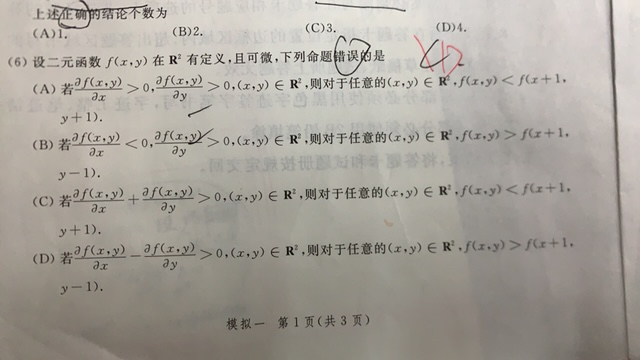 上述正确的结论个数为
(A)1. (B)2. (C)3. (D)4.
(6) 设二元函数 f(x,y) 在 R² 有定义,且可微,下列命题错误的是
(A) 若∂f(x,y)/∂x>0,∂f(x,y)/∂y>0,(x,y)∈R²,则对于任意的(x,y)∈R²,f(x,y)<f(x+1,
y+1).
(B) 若∂f(x,y)/∂x<0,∂f(x,y)/∂y>0,(x,y)∈R²,则对于任意的(x,y)∈R²,f(x,y)>f(x+1,
y-1).
(C) 若∂f(x,y)/∂x+∂f(x,y)/∂y>0,(x,y)∈R²,则对于任意的(x,y)∈R²,f(x,y)<f(x+1,
y+1).
(D) 若∂f(x,y)/∂x-∂f(x,y)/∂y>0,(x,y)∈R²,则对于任意的(x,y)∈R²,f(x,y)>f(x+1,
y-1).
模拟一 第1页(共3页)